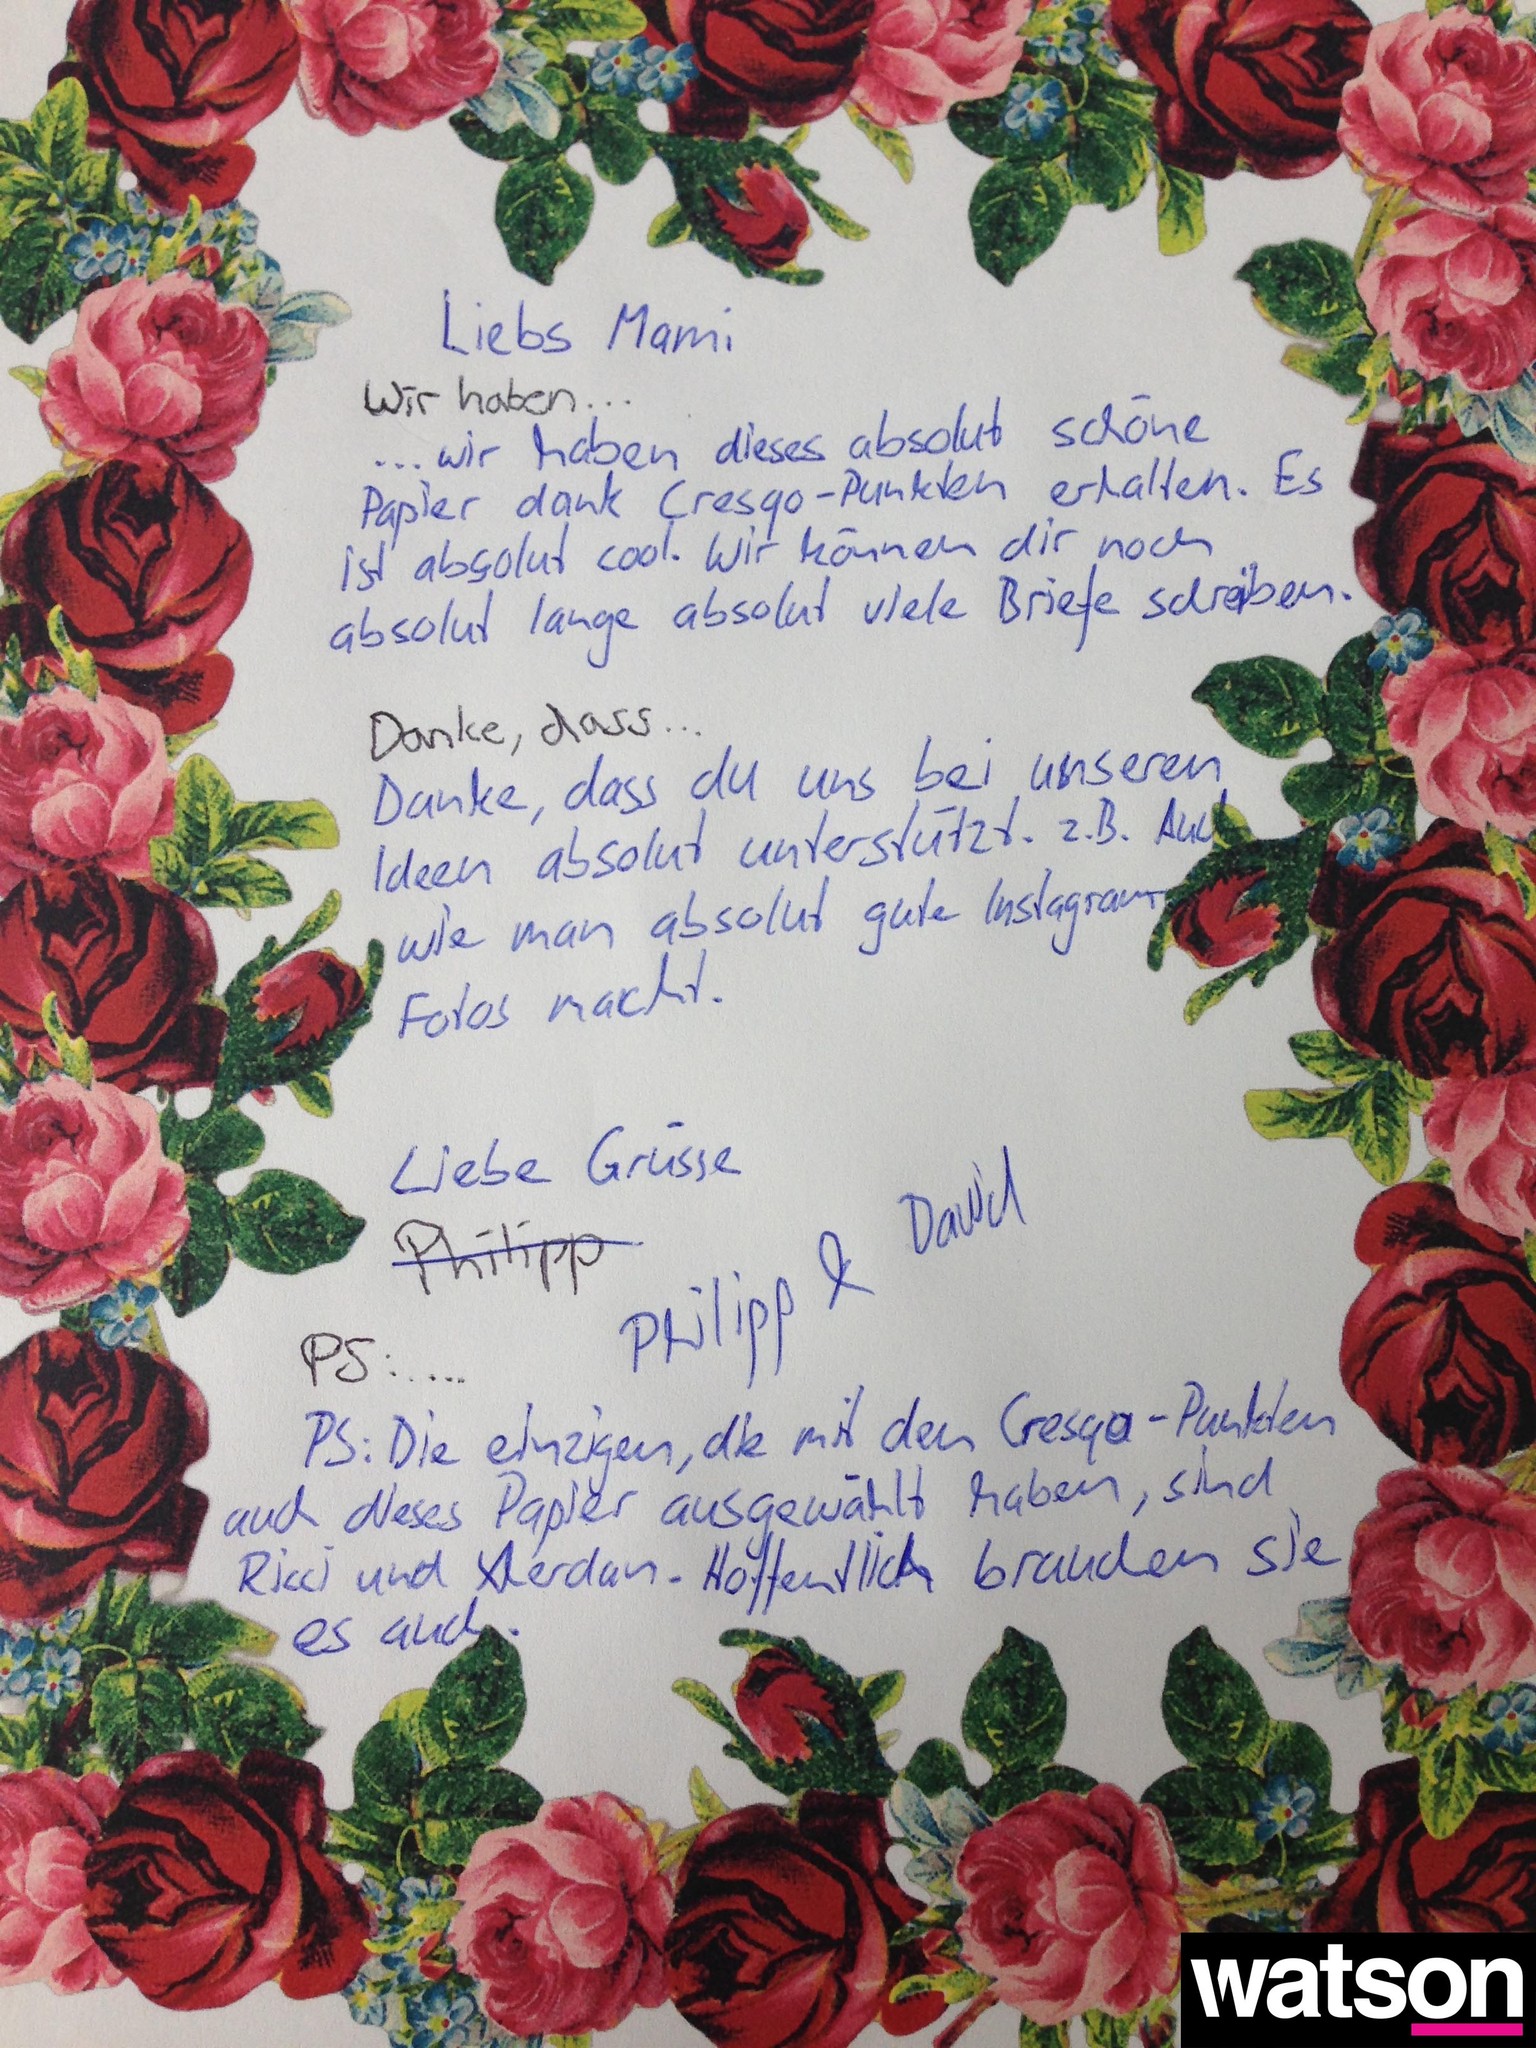 Liebs Mami
Wir haben...
...wir haben dieses absolut schöne
Papier dank Cresqo-Punkten erhalten. Es
ist absolut cool. Wir können dir noch
absolut lange absolut viele Briefe schreiben.
Danke, dass...
Danke, dass du uns bei unseren
Ideen absolut unterstützt. z.B. Auch
wie man absolut gute Instagram-
Fotos macht.
Liebe Grüsse
Philipp
Philipp & David
PS:....
PS: Die einzigen, die mit den Cresqo-Punkten
auch dieses Papier ausgewählt haben, sind
Ricci und Hoffentlich brauchen sie
es auch.
watson